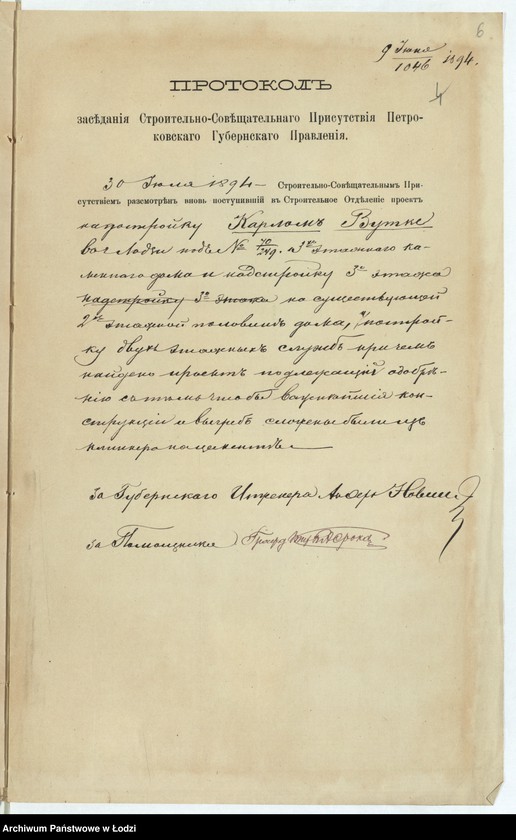 6
9 Июня 1894.
1046
4
ПРОТОКОЛЪ
засѣданія Строительно-Совѣщательнаго Присутствія Петро-
ковскаго Губернскаго Правленія.
30 Июля 1894 — Строительно-Совѣщательнымъ При-
сутствіемъ разсмотрѣнъ вновь поступившій въ Строительное Отдѣленіе проектъ
на постройку Карломъ Вутке
въ г. Лодзи подъ № 70/249. а 3хъ этажнаго ка-
меннаго дома и надстройку 3го этажа
надстройку 3го этажа на существующей
2хъ этажной половинѣ дома, построй-
ку двухъ этажныхъ службъ причемъ
найдено проектъ подлежащій одобрѣ-
нію съ тѣмъ чтобы важнѣйшія кон-
струкціи и выгребъ сложены были изъ
клинкера на цементѣ.
За Губернскаго Инженера
За Помощника
Archiwum Państwowe w Łodzi